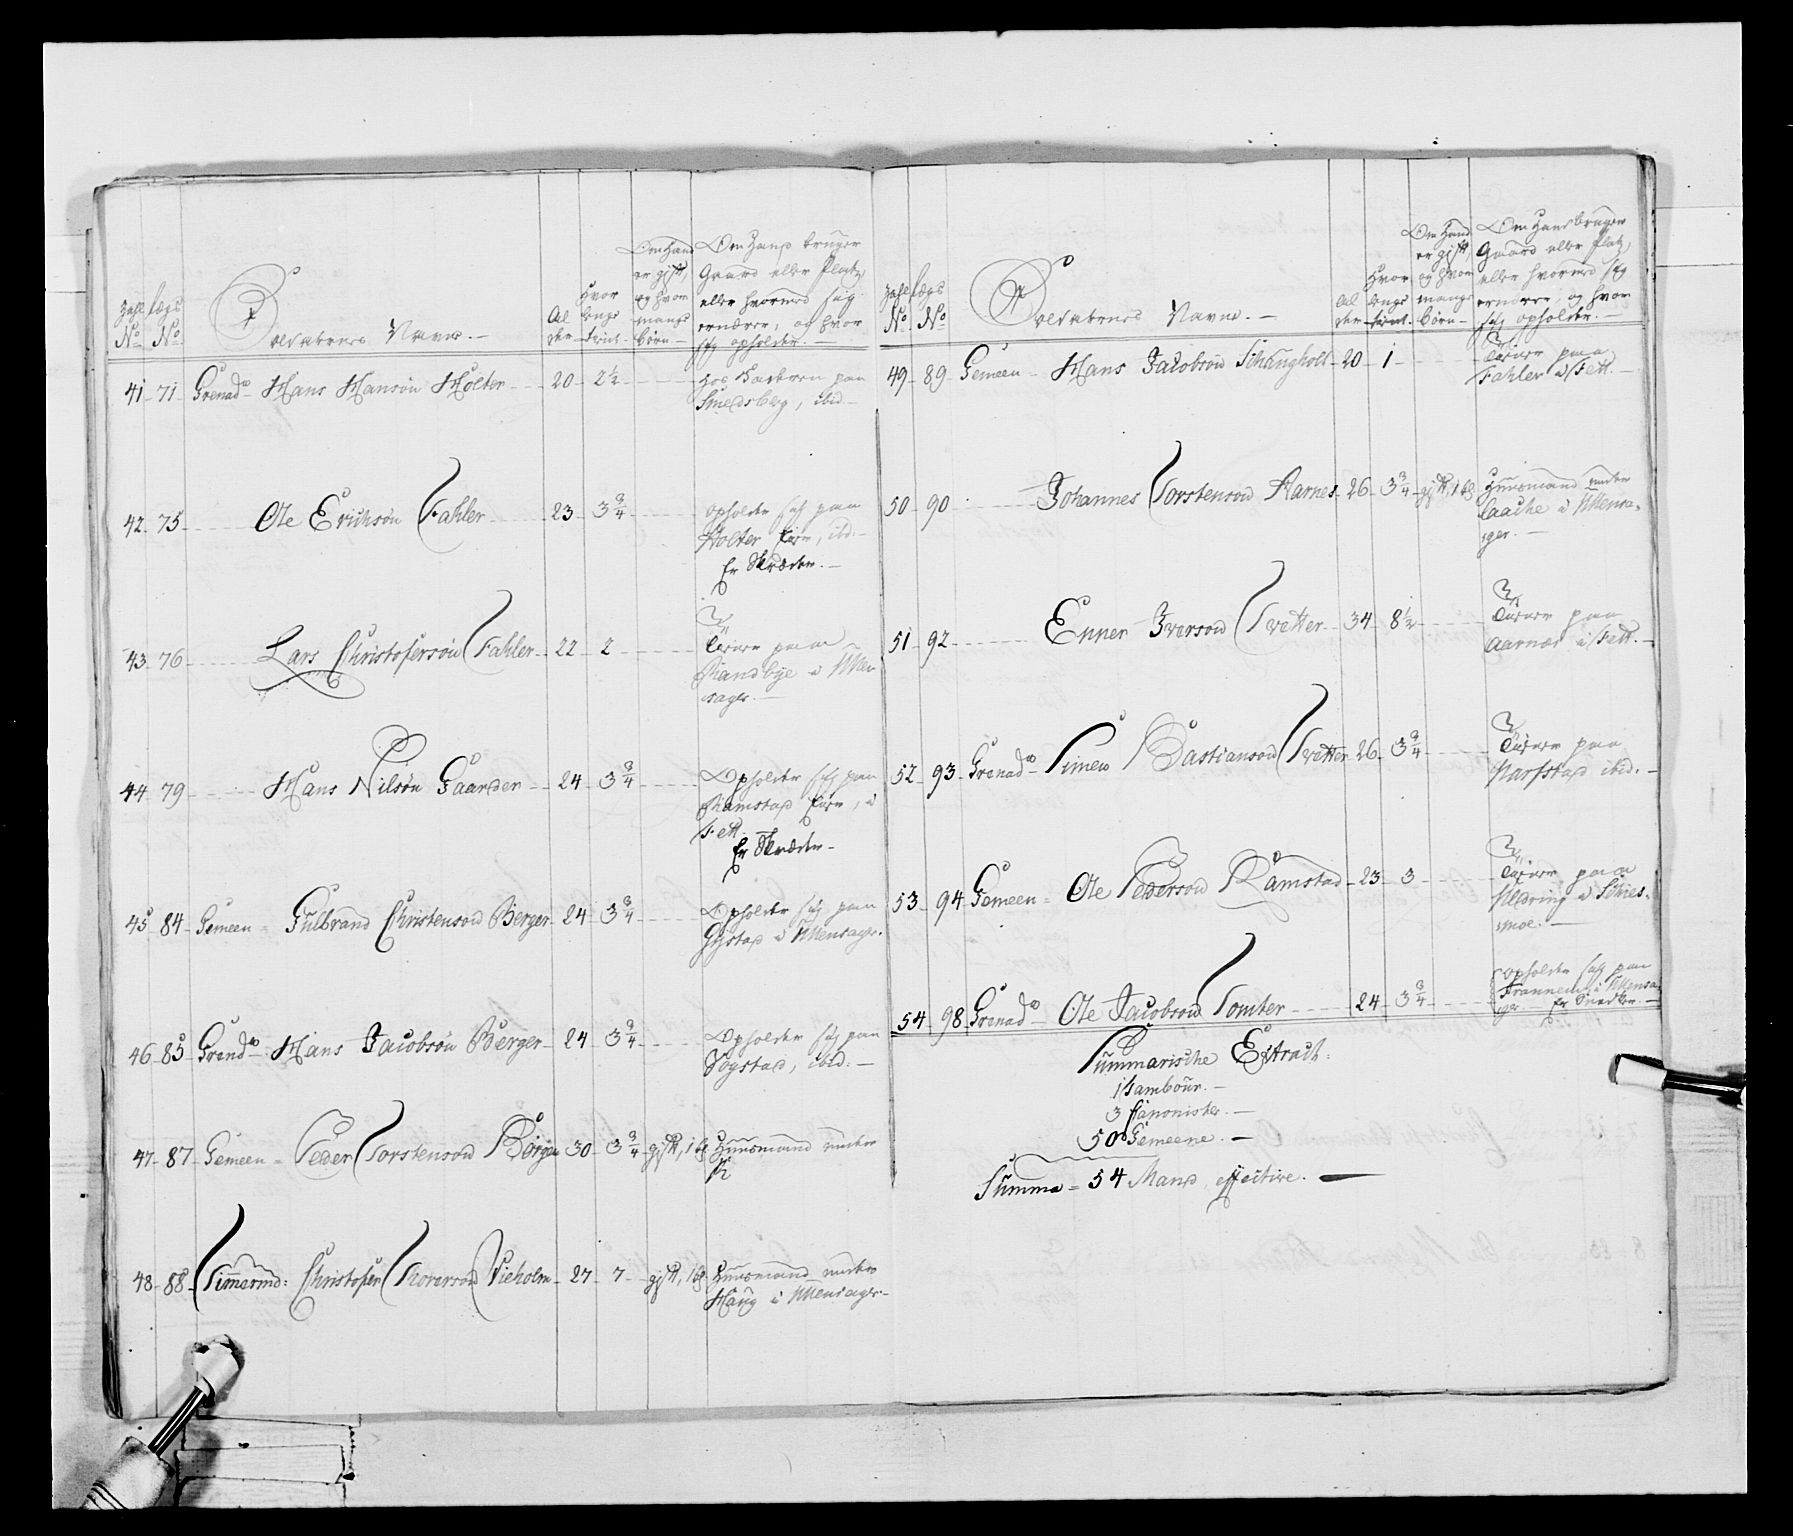 Zahl No
Lægs No
Soldaternes Navne. -
Alder
Hvor længe tient.
Om Hand er gift, og hvor mange børn -
Om Hand bruger Gaard eller Platz, eller hvormed sig ernærer, og hvor sig opholder. -
41 - 71 - Grenad - Hans Hansøn Holter - 20 - 2 1/2
hos Faderen paa
Smedsberg, ibid -
42 - 75 - Ole Erichsøn Fahler - 23 - 3 3/4
opholder sig paa
Holter ibid. -
Er Skræder. -
43 - 76 - Lars Christofersøn Fahler - 22 - 2
Tiener paa
Randbye i Urensager. -
44 - 79 - Hans Nilsøn Gaarder - 24 - 3 3/4
Opholder sig paa
Ramstad i
Fett
Er Skræder -
45 - 84 - Gemeen = Gulbrand Christensøn Berger - 24 - 3 3/4
Opholder sig paa
i
46 - 85 - Grend - Hans Jacobsøn Berger - 24 - 3 3/4
Opholder sig paa
ibid. -
47 - 87 - Gemeen = Peder Torstensøn Børger 30 - 3 3/4 - gift, 1 b
Huusmand under
48 - 88 - Timermd: Christofer Thoversøn Vieholm - 27 - 7 - gift, 1 b
Huusmand under
Haug i
Zahl No
Lægs No
Soldaternes Navne. -
Alder
Hvor længe tient.
Om Hand er gift, og hvor mange børn -
Om Hand bruger Gaard eller Platz, eller hvormed sig ernærer, og hvor sig opholder. -
49 - 89 - Gemeen - Hans Jacobsøn Schiungholt - 20 - 1
Tiener paa
Fahler i Fett. -
50 - 90 - Johannes Torstensøn Aarnes - 26 - 3 3/4 - gift, 1 b
Huusmand under
i
51 - 92 - Enner Iversøn Tvetter - 34 - 8 1/2
Tiener paa
Aarnæs i Fett. -
52 - 93 - Grenad - Simen Bastiansøn Tvetter - 26 - 3 3/4
Tiener paa
ibid. -
53 - 94 - Gemeen = Ole Pedersøn Ramstad - 23 - 3
Tiener paa
i
54 - 98 - Grenad - Ole Jacobsøn Tomter - 24 - 3 3/4
opholder sig paa
Er Snedker. -
Summarische Extract:
1 Tambour. -
3 Canonister. -
50 Gemeene. -
Summa = 54 Mand, effective. -